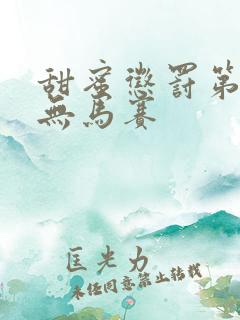 甜蜜懲罰第
無馬賽
匡光力
未經同意禁止轉載